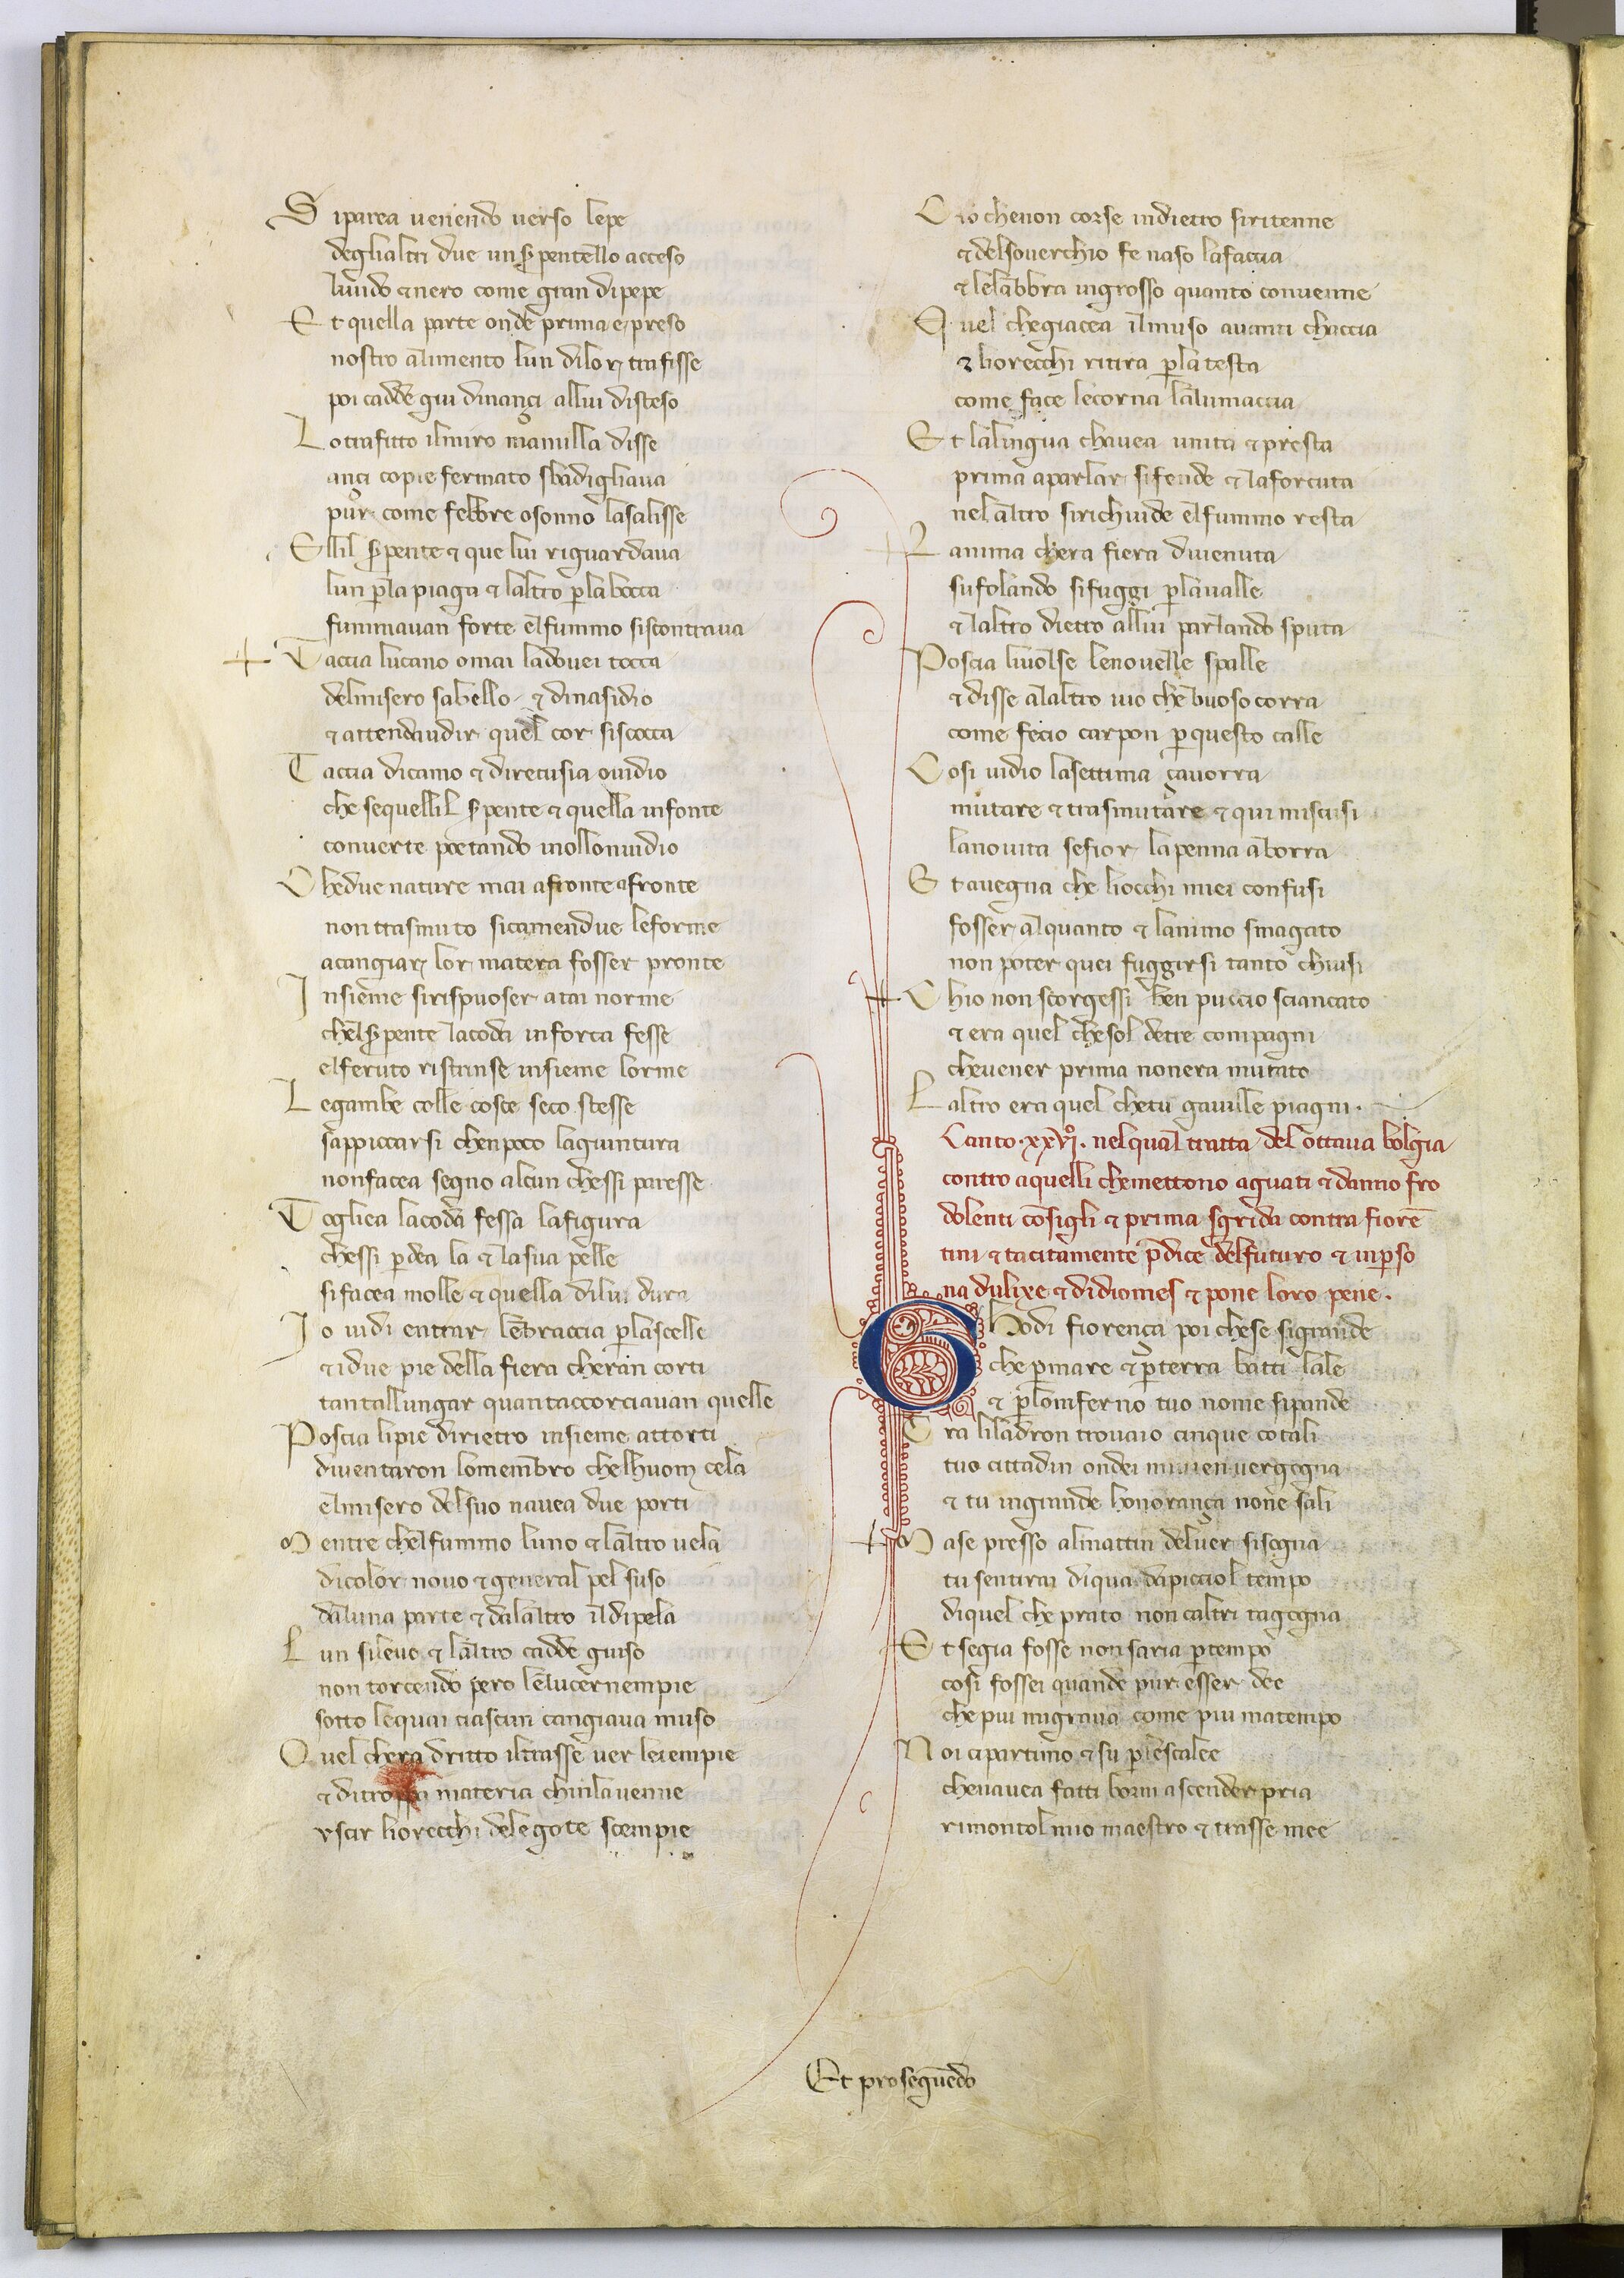 S iparea venendo verso lepe
deglialtri due un sꝑpentello acceso
livido ⁊nero come gran dipepe
E t quella parte onde prima e preso
nostro alimento lun dilor trafisse
poi cadde giu dinançi allui disteso
L otrafitto ilmiro manulla disse
ançi copie fermato sbadigliava
pur come febbre osonno lasalisse
E llil sꝑpente ⁊ que lui riguardava
lun ꝑla piaga ⁊ laltro ꝑla bocca
fummavan forte elfummo siscontrava
T accia lucano omai ladovei tocca
delmisero sabello ⁊ dinasidio
⁊ attendaudir quel cor siscocca
T accia dicamo ⁊ diretusia ovidio
che sequellil sꝑpente ⁊ quella infonte
converte poetando inollonvidio
C hedue nature mai afronte afronte
non trasmuto sicamendue leforme
acangiar lor matera fosser pronte
I nsieme sirispuoser atai norme
chelsꝑpente lacoda inforca fesse
elferuto ristrinse insieme lorme
L egambe colle cosce seco stesse
sappiccarsi chenpoco lagiuntura
nonfacea segno alcun chessi paresse
T ogliea lacoda fessa lafigura
chessi ꝑdea la ⁊ lasua pelle
sifacea molle ⁊ quella dilui dura
I o vidi entrar lebraccia ꝑlascelle
⁊idue pie della fiera cheran corti
tantallungar quantaccorciavan quelle
P oscia lipie dirietro insieme attorti
diventaron lomembro chelhuom cela
elmisero delsuo navea due porti
M entre chelfummo luno ⁊ laltro vela
dicolor novo ⁊ general pel suso
daluna parte ⁊ dalaltro ildipela
L un silevo ⁊ laltro cadde giuso
non torcendo pero lelucernempie
sotto lequai ciascun cangiava muso
Q uel chera dritto iltrasse ver letempie
⁊ ditroppa materia chinlavenne
vscir liorecchi delegote scempie
C io chenon corse indietro siritenne
⁊ delsoverchio fe naso lafaccia
⁊ lelabbra ingrosso quanto convenne
Q uel chegiacea ilmuso avanti chaccia
⁊ liorecchi ritira ꝑla testa
come face lecorna lalumaccia
E t lalingua chavea unita ⁊ presta
prima aparlar sifende ⁊ laforcuta
nelaltro sirichiude elfummo resta
L anima chera fiera divenuta
sufolando sifuggi ꝑlavalle
⁊ laltro dietro allui parlando sputa
P oscia livolse lenovelle spalle
⁊ disse alaltro vio che buoso corra
come fecio carpon ꝑquesto calle
C osi vidio lasettima çavorra
mutare ⁊ trasmutare ⁊ qui miscusi
lanovita sefior lapenna aborra
E t avegna che liocchi miei confusi
fosser alquanto ⁊ lanimo smagato
non poter quei fuggirsi tanto chiusi
C hio non scorgessi ben puccio sciancato
⁊ era quel chesol detre compagni
chevener prima nonera mutato
L altro era quel chetu gaville piagni.
Canto .xxvi. nelqual tratta del ottava bolgia
contro aquelli chemettono aguati ⁊ danno fro
dolenti cōsigli ⁊ prima sgrida contra fiorē
tini ⁊ tacitamente p̄dice delfuturo ⁊ inꝑso
na dulixe ⁊ didiomes ⁊ pone loro pene.
G hodi fiorença poi chese sigrande
che ꝑmare ⁊ ꝑterra batti lale
⁊ ꝑlonferno tuo nome sipande
T ra liladron trovaio cinque cotali
tuo cittadin ondei mivien vergogna
⁊ tu ingrande honorança none sali
M ase presso almattin delver sisogna
tu sentirai diqua dapicciol tempo
diquel che prato non caltri tagogna
E t segia fosse non saria ꝑtempo
cosi fossei quande pur esser dee
che piu migrava come piu matempo
N oi cipartimo ⁊ su ꝑlescalee
chenavea fatti borni ascender pria
rimontol mio maestro ⁊ trasse mee
Et prosequēdo